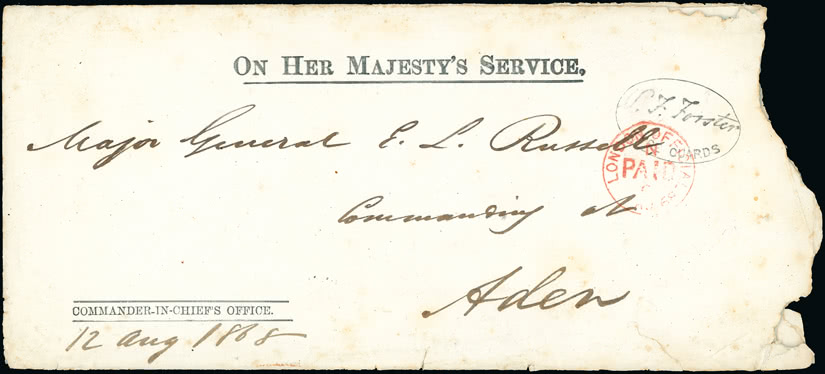 ON HER MAJESTY'S SERVICE.
Forster
GUARDS
Major General E. L. Russell
LONDON OFFICIAL
PAID
Commanding at
Aden
COMMANDER-IN-CHIEF'S OFFICE.
12 Aug 1868